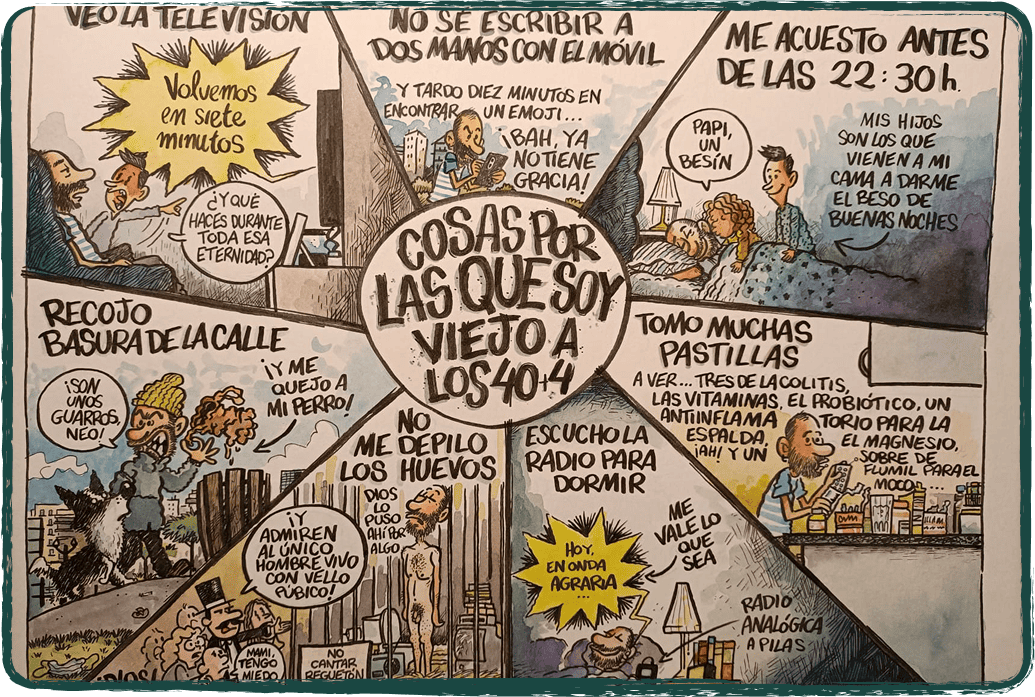 VEO LA TELEVISIÓN
Volvemos
en siete
minutos
¿Y QUÉ
HACES DURANTE
TODA ESA
ETERNIDAD?
NO SÉ ESCRIBIR A
DOS MANOS CON EL MÓVIL
Y TARDO DIEZ MINUTOS EN
ENCONTRAR UN EMOJI...
¡BAH, YA
NO TIENE
GRACIA!
ME ACUESTO ANTES
DE LAS 22:30h.
PAPI,
UN
BESÍN
MIS HIJOS
SON LOS QUE
VIENEN A MI
CAMA A DARME
EL BESO DE
BUENAS NOCHES
COSAS POR
LAS QUE SOY
VIEJO A
LOS 40+4
RECOJO
BASURA DE LA CALLE
¡SON
UNOS
GUARROS,
NEO!
¡Y ME
QUEJO A
MI PERRO!
NO
ME DEPILO
LOS HUEVOS
DIOS
LO
PUSO
AHÍ POR
ALGO
¡Y
ADMIREN
AL ÚNICO
HOMBRE VIVO
CON VELLO
PÚBICO!
¡DIOS!
MAMI,
TENGO
MIEDO
NO
CANTAR
REGUETÓN
ESCUCHO LA
RADIO PARA
DORMIR
HOY,
EN ONDA
AGRARIA
...
ME
VALE LO
QUE
SEA
RADIO
ANALÓGICA
A PILAS
TOMO MUCHAS
PASTILLAS
A VER... TRES DE LA COLITIS,
LAS VITAMINAS, EL PROBIÓTICO, UN
ANTIINFLAMATORIO PARA LA
ESPALDA, EL MAGNESIO,
¡AH! Y UN SOBRE DE
FLUMIL PARA EL
MOCO...